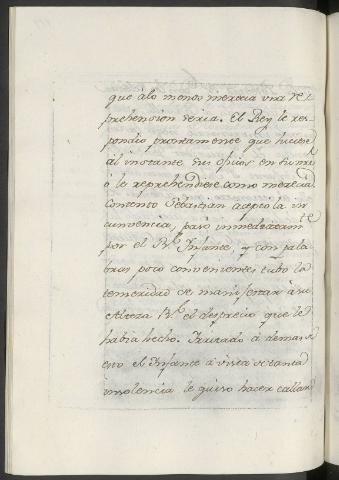 que álo menos merecia una re-
prehension seria. El Rey le res-
pondio prontamente que hiciese
al instante su oficio en su nre
ó le reprehendiese como merecia.
Contento Sebastian acepto la in
cunvencia, pasó inmediatam.te
por el R.l Infante, y con pala
bras poco convenientes tubo la
temeridad de manifestar á su
Alteza R.l el desprecio que le
habia hecho. Irritado á demas
eno el Infante á vista de tanta
insolencia le quiso hacer callar